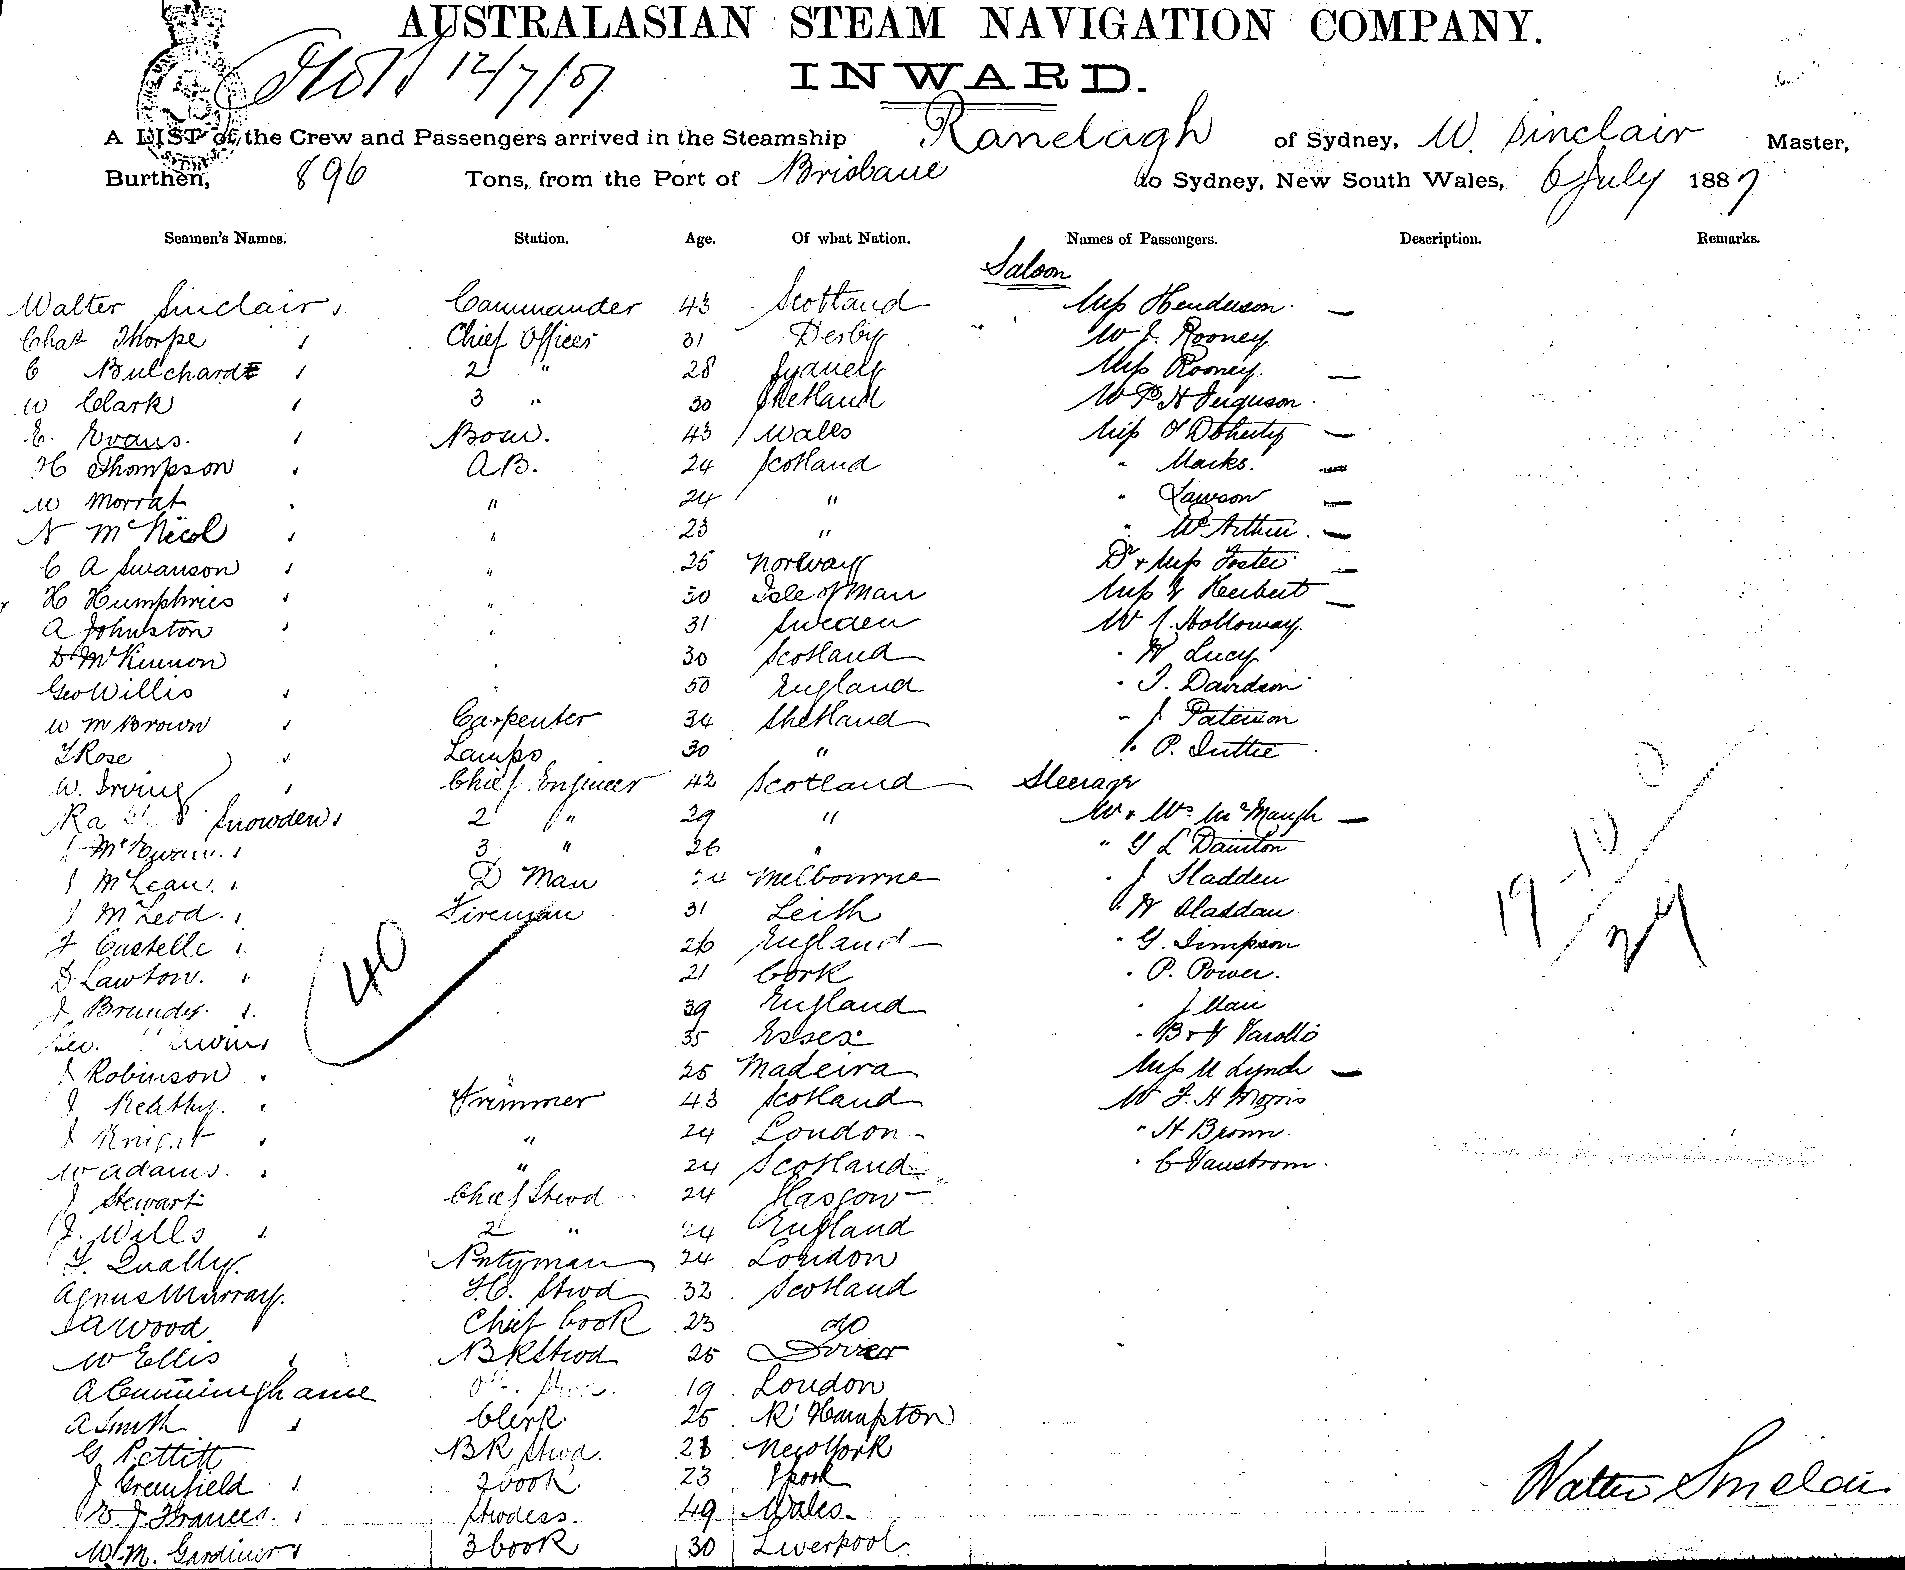 AUSTRALASIAN STEAM NAVIGATION COMPANY.
12/7/87
INWARD.
A LIST of the Crew and Passengers arrived in the Steamship Ranelagh of Sydney, W. Sinclair Master,
Burthen, 896 Tons, from the Port of Brisbane to Sydney, New South Wales, 6 July 1887
Seamen's Names. Station. Age. Of what Nation. Names of Passengers. Description. Remarks.
Saloon
Walter Sinclair Commander 43 Scotland Miss Henderson
Chas Thorpe Chief Officer 31 Derby W J. Rooney
C Bulchardt 2 " 28 Sydney Miss Rooney
W Clark 3 " 30 Shetland W P H Ferguson
E. Evans Bosn. 43 Wales Miss O'Doherty
H Thompson A.B. 24 Scotland " Marks.
W Morrat " 24 " " Lawson
N McNicol " 23 " " McArthur
C A Swanson " 25 Norway Dr & Miss Foster
H Humphries " 30 Isle of Man Miss Herbert
A Johnston " 31 Sweden Holloway
D McKinnon " 30 Scotland " W Lucy
Geo Willis " 50 England " T. Davidson
W M Brown Carpenter 34 Shetland " J Paterson
T Rose Lamps 30 " " P. Duttie
W. Irving Chief Engineer 42 Scotland Steerage
Snowden 2 " 29 "
3 " 26 " " G L Dainton
J McLean D Man Melbourne " J Sladden
J McLeod Fireman 31 Leith
F Castelle 26 England " G. Simpson
D Lawton 21 Cork " P. Power.
J Brundy 39 England " J Mau
35 Essex
J Robinson 25 Madeira Miss M Lynch
J Keathy Trimmer 43 Scotland W F. H Morris
J Knight " 24 London " H Brown
W Adams " 24 Scotland " C Vanstrom
J Stewart Chief Stwd 24 Glasgow
J. Wills 2 " 24 England
T. Qually Pntyman 24 London
Agnus Murray F.C. Stwd 32 Scotland
Wood Chief Cook 23 do
W Ellis BK Stwd 25 Dover
A Cunninghame 19 London
A Smith Clerk 25 R'Hampton
G Pettitt BK Stwd 28 New York
J Greenfield 2 Cook 23
J Frances Stwdess 49 Wales
W. M. Gardiner 3 Cook 30 Liverpool
40
19
24
Walter Sinclair